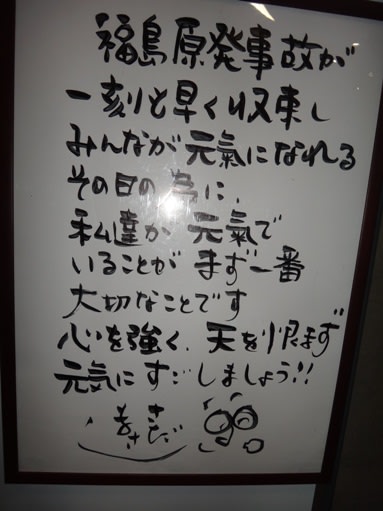 福島原発事故が
一刻も早く収束し
みんなが元氣になれる
その日の為に、
私達が元氣で
いることがまず一番
大切なことです
心を強く、天を恨まず
元気にすごしましょう!!